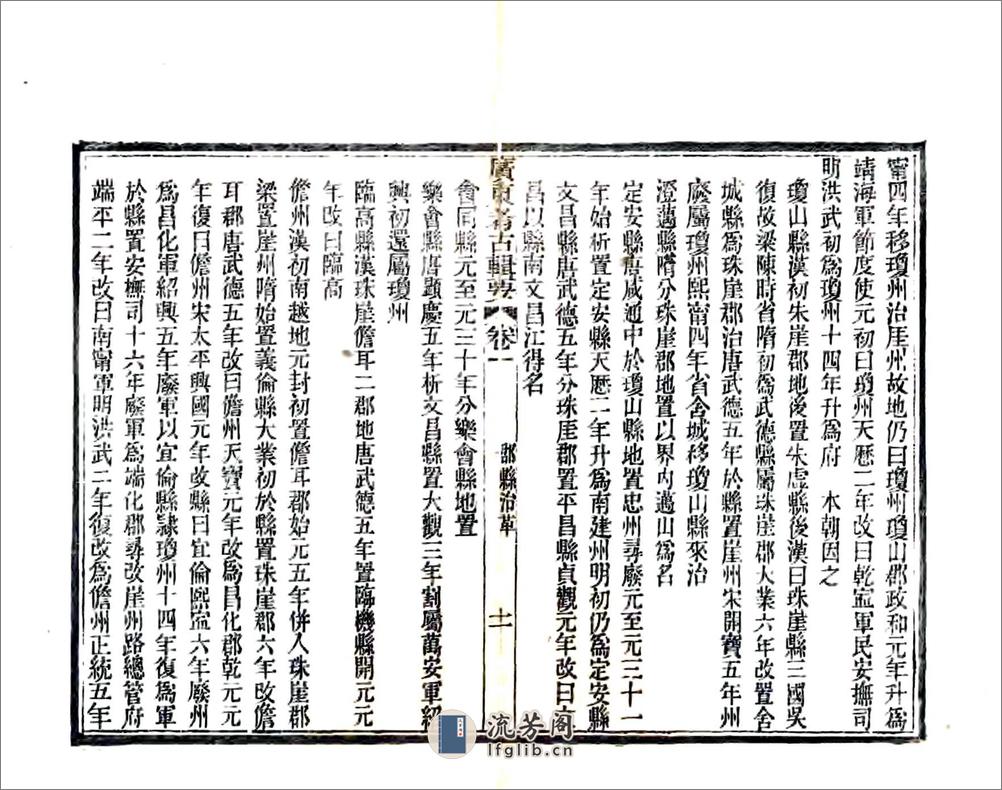 甯四年移瓊州治厓州故地仍曰瓊州瓊山郡政和元年升爲
靖海軍節度使元初曰瓊州天歷二年改曰乾寍軍民安撫司
明洪武初爲瓊州十四年升爲府 本朝因之
瓊山縣漢初朱崖郡地後置朱盧縣後漢曰珠崖縣三國吳
復故梁陳時省隋初爲武德縣屬珠崖郡大業六年改置舍
城縣爲珠崖郡治唐武德五年於縣置崖州宋開寶五年州
廢屬瓊州熙甯四年省舍城移瓊山縣來治
澄邁縣隋分珠崖郡地置以界內邁山爲名
定安縣唐咸通中於瓊山縣地置忠州尋廢元至元三十一
年始析置定安縣天歷二年升爲南建州明初仍爲定安縣
文昌縣唐武德五年分珠厓郡置平昌縣貞觀元年改曰文
昌以縣南文昌江得名
廣東考古輯要 卷一 郡縣沿革 十一
會同縣元至元三十年分樂會縣地置
樂會縣唐顯慶五年析文昌縣置大觀三年割屬萬安軍紹
興初還屬瓊州
臨高縣漢珠崖儋耳二郡地唐武德五年置臨機縣開元元
年改曰臨高
儋州漢初南越地元封初置儋耳郡始元五年併入珠崖郡
梁置崖州隋始置義倫縣大業初於縣置珠崖郡六年改儋
耳郡唐武德五年改曰儋州天寶元年改爲昌化郡乾元元
年復曰儋州宋太平興國元年改縣曰宜倫熙寍六年廢州
爲昌化軍紹興五年廢軍以宜倫縣隷瓊州十四年復爲軍
端平二年改曰南甯軍明洪武二年復改爲儋州正統五年
於縣置安撫司十六年廢軍爲端化郡尋改崖州路總管府
流芳阁
lfglib.cn